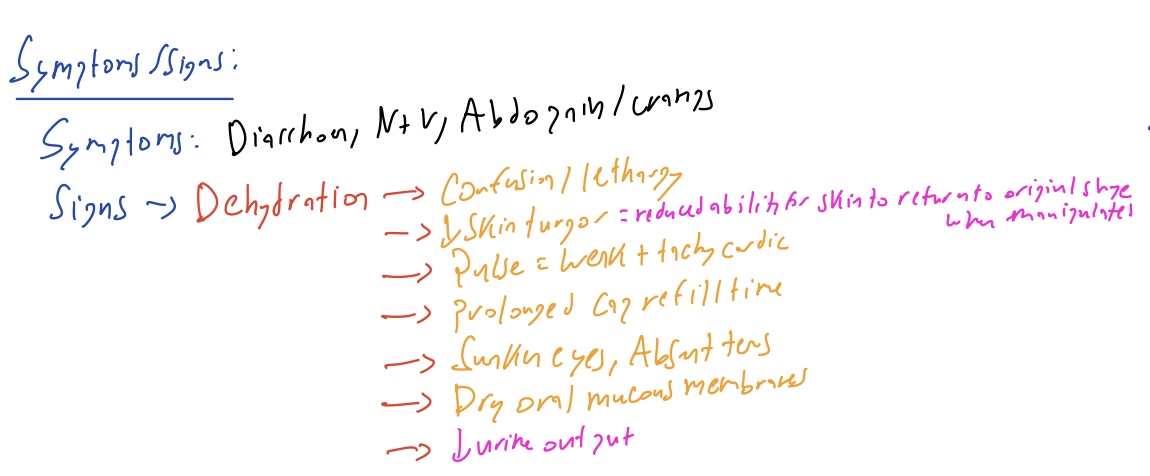 Symptoms/Signs:
Symptoms: Diarrhoea, N+V, Abdo pain/cramps
Signs → Dehydration → Confusion/lethargy
→ ↓ Skin turgor = reduced ability for skin to return to original shape
when manipulates
→ Pulse = weak + tachycardic
→ Prolonged cap refill time
→ Sunken eyes, Absent tears
→ Dry oral mucous membranes
→ ↓ urine output